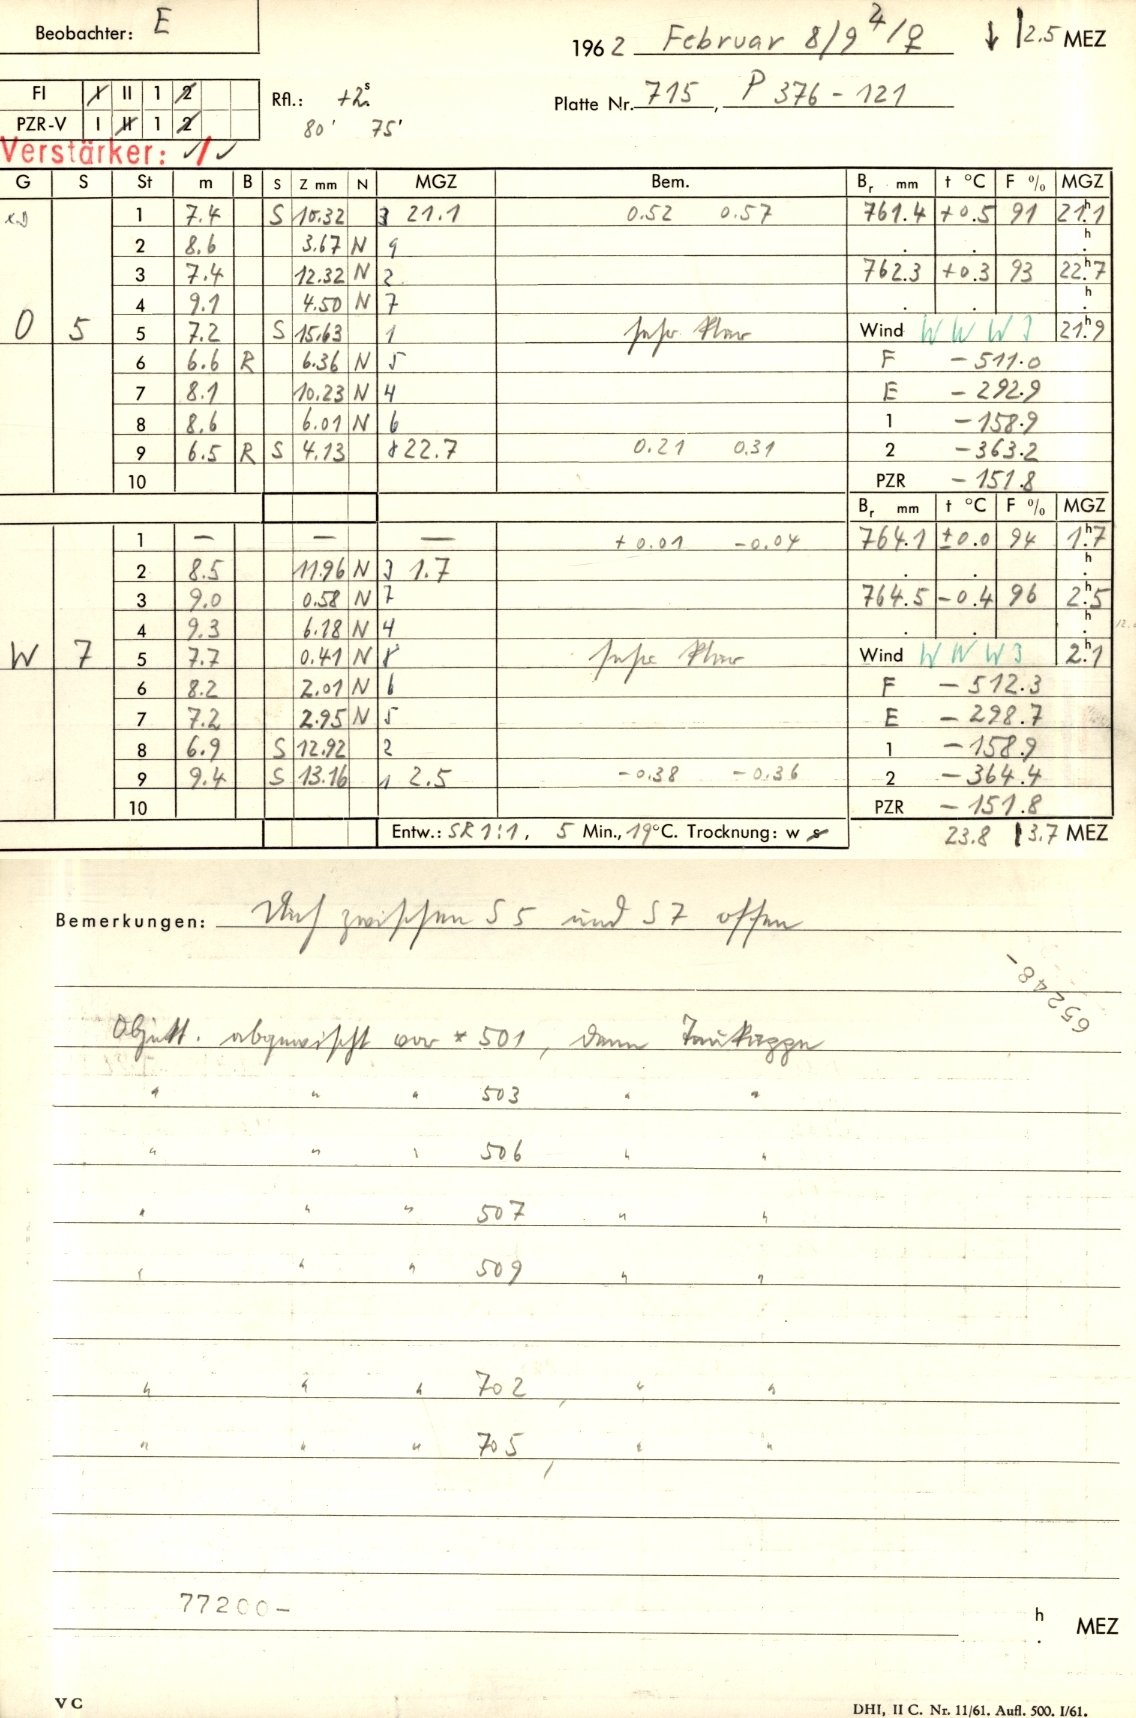 Beobachter: E
1962 Februar 8/9 ♃/♀ ↓ 12.5 MEZ
FI I II 1 2
Rfl.: +2ˢ
Platte Nr. 715, P 376 - 121
PZR-V I II 1 2
80' 75'
Verstärker: ✓/✓
G S St m B S Z mm N MGZ Bem. Bᵣ mm t °C F % MGZ
1 7.4 S 10.32 3 21.1 0.52 0.57 761.4 +0.5 91 21ʰ.1
2 8.6 3.67 N 9 . . ʰ.
3 7.4 12.32 N 2 762.3 +0.3 93 22ʰ.7
4 9.1 4.50 N 7 . . ʰ.
O 5 5 7.2 S 15.63 1 sehr klar Wind W W W 3 21ʰ.9
6 6.6 R 6.36 N 5 F - 511.0
7 8.1 10.23 N 4 E - 292.9
8 8.6 6.01 N 6 1 - 158.9
9 6.5 R S 4.13 8 22.7 0.21 0.31 2 - 363.2
10 PZR - 151.8
Bᵣ mm t °C F % MGZ
1 — — — +0.01 -0.04 764.1 ±0.0 94 1ʰ.7
2 8.5 11.96 N 3 1.7 . . ʰ.
3 9.0 0.58 N 7 764.5 -0.4 96 2ʰ.5
4 9.3 6.18 N 4 . . ʰ.
W 7 5 7.7 0.41 N 8 sehr klar Wind W W W 3 2ʰ.1
6 8.2 2.01 N 6 F - 512.3
7 7.2 2.95 N 5 E - 298.7
8 6.9 S 12.92 2 1 - 158.9
9 9.4 S 13.16 1 2.5 -0.38 -0.36 2 - 364.4
10 PZR - 151.8
Entw.: SR 1:1, 5 Min., 19°C. Trocknung: w 23.8 13.7 MEZ
Bemerkungen: Dach zwischen S 5 und S 7 offen
65248-
Objekt. abgewischt vor * 501, dann Taukappe
" " " 503 " "
" " " 506 " "
" " " 507 " "
" " " 509 " "
" " " 702, " "
" " " 705, " "
77200-
h
. MEZ
V C
DHI, II C. Nr. 11/61. Aufl. 500. I/61.